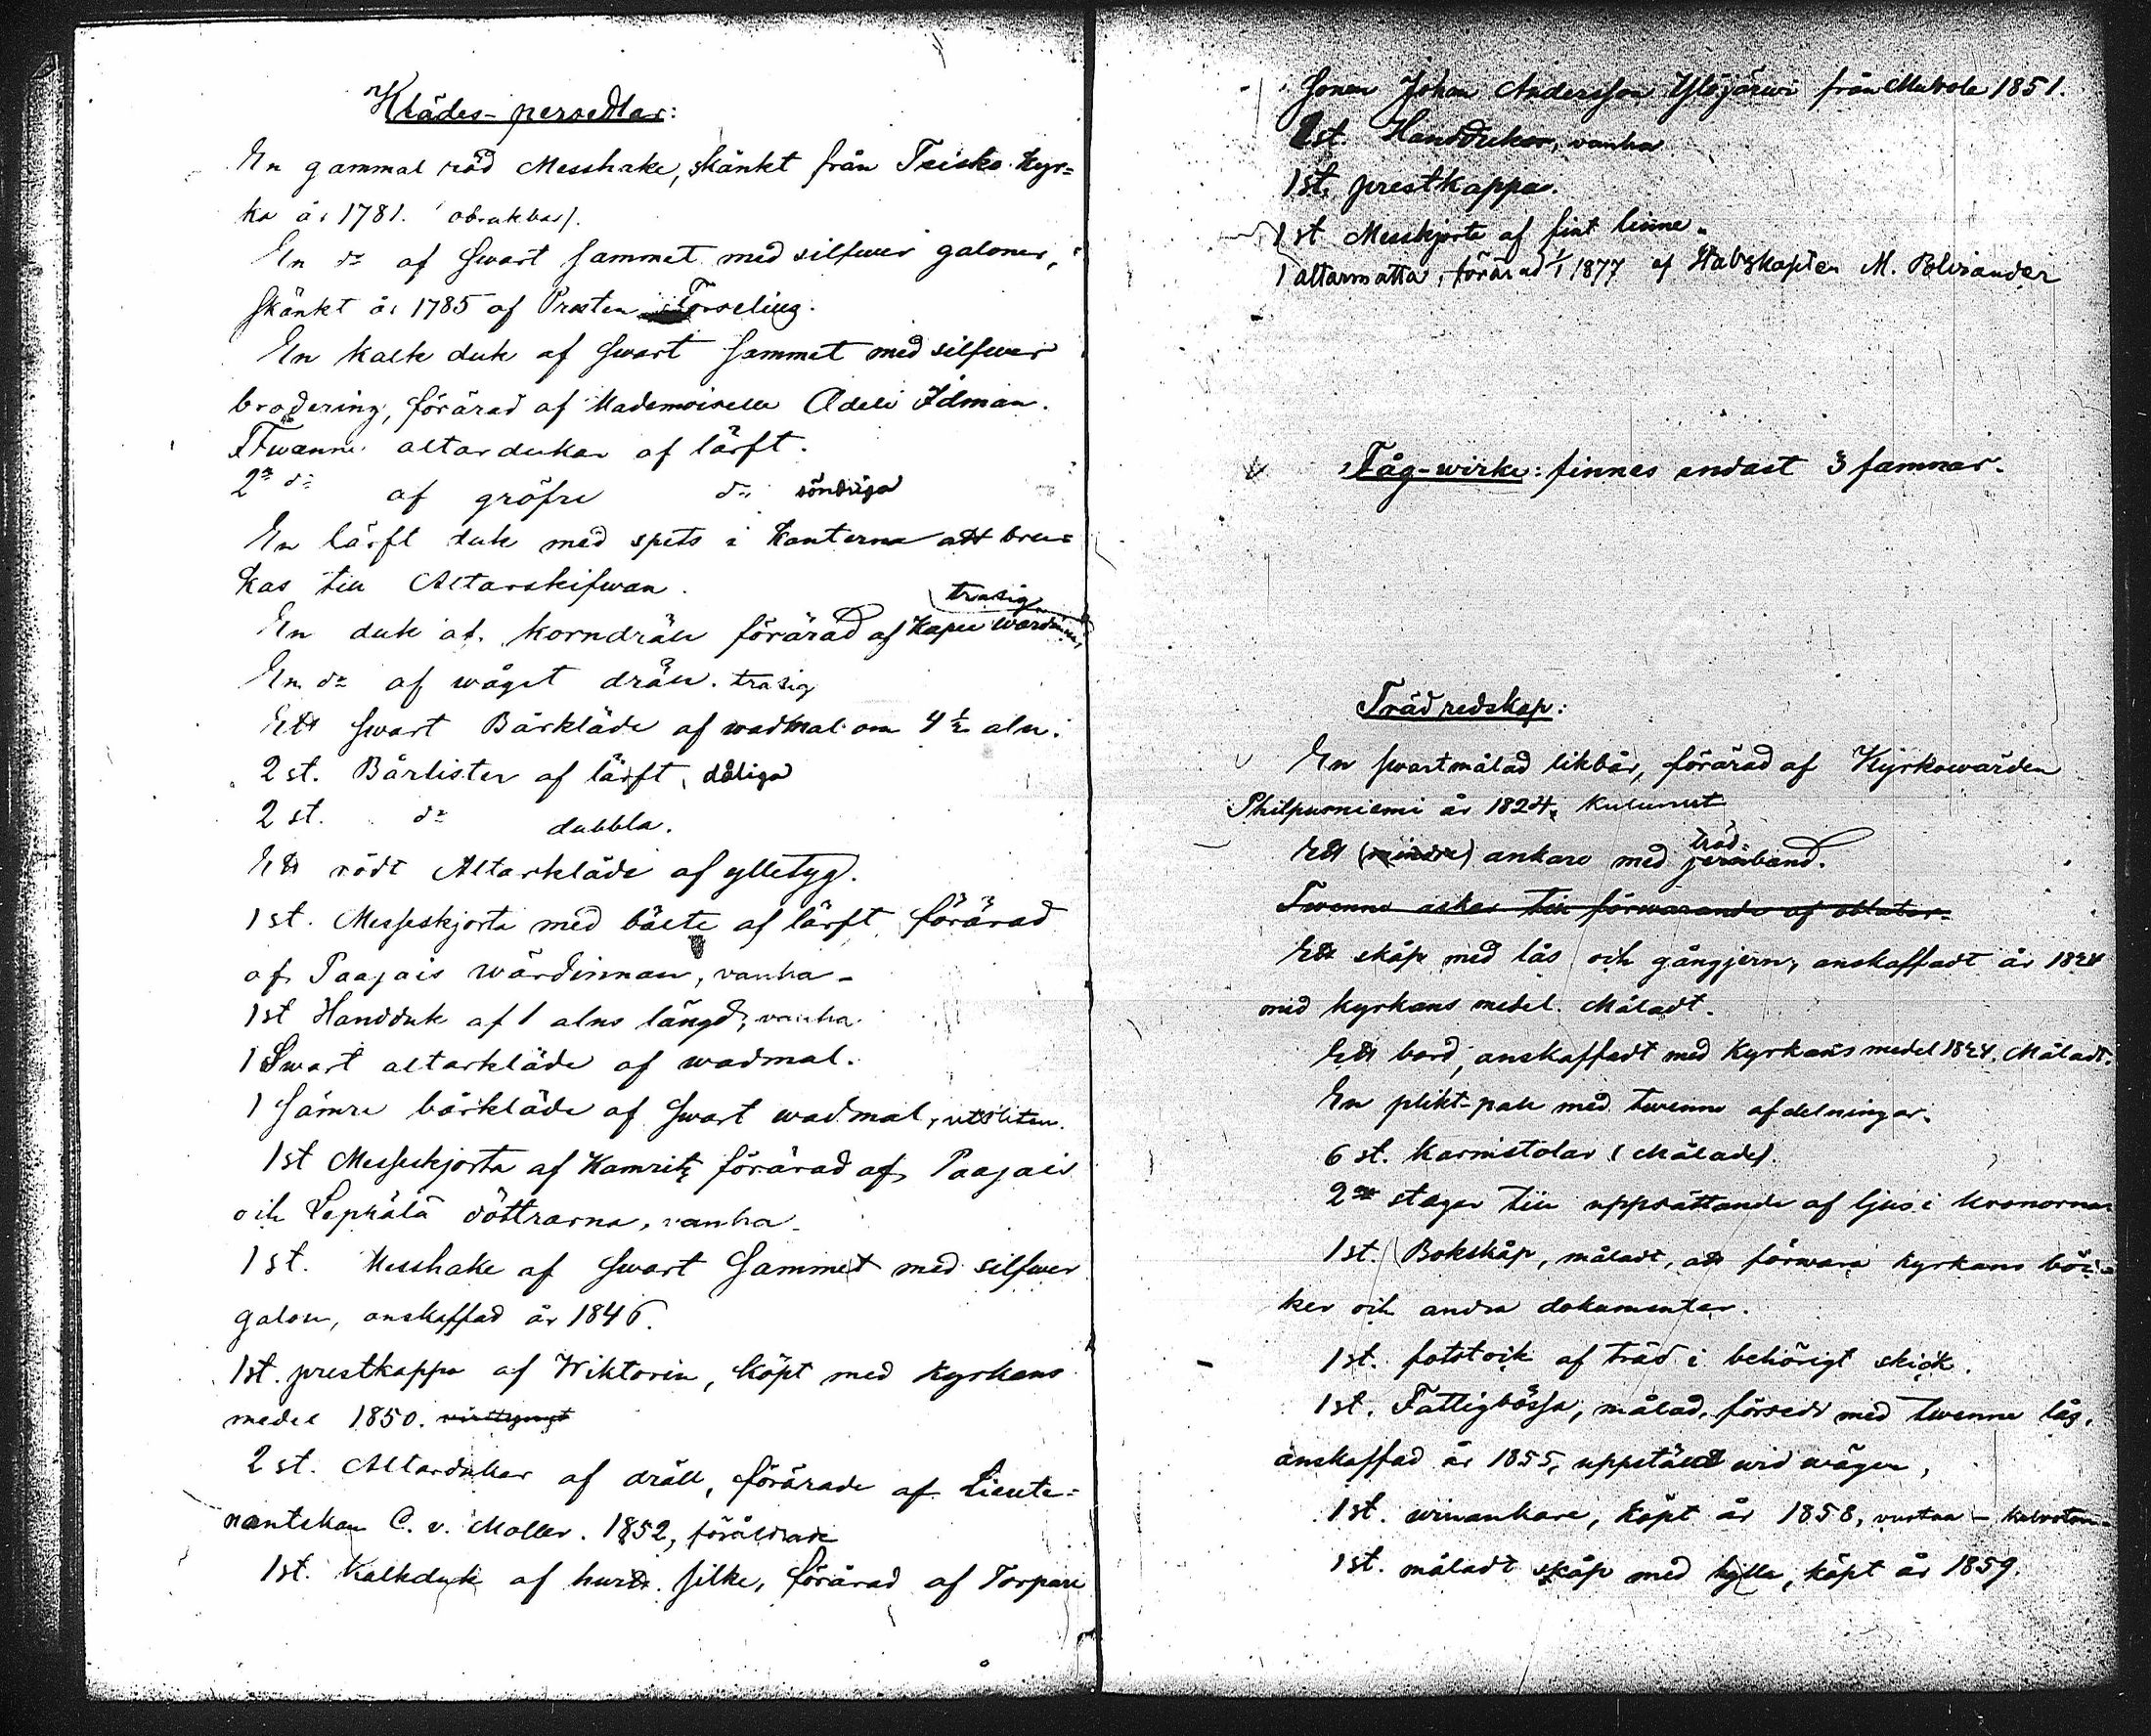 Klädes-persedlar:
En gammal röd Messhake, skänkt från Teisko Kyr=
ka år 1781. obrukbar).
En do af swart sammet med silfwer galoner,
skänkt år 1785 af Prosten Forseling.
En kalk duk af swart sammet med silfwer
brodering, förärad af Mademoiselle Adele Idman.
Twänne altardukar af lärft.
2ne do af gröfre do söndriga
En lärft duk med spets i Kanterna att bru=
kas till Altarskifwan.
trasig
En duk af korndräll förärad af Kapell
En do af wåget dräll. trasig
Ett swart Bårkläde af wadmal om 4 1/2 aln.
2 st. Bårlister af lärft, dåliga
2 st. do dubbla.
Ett rödt Altarkläde af ylletyg.
1 st. Messeskjorta med bälte af lärft förärad
af Paajais wärdinnan, vanha -
1st Handduk af 1 alns längd; vanha
1 Swart altarkläde af wadmal.
1 sämre bårkläde af swart wadmal, utsliten.
1st Messeskjorta af Kamritz förärad af Paajais
och Sepkälä döttrarna, vanha.
1 st. Messhake af swart sammet med silfwer
galon, anskaffad år 1846.
1st. prestkappa af Wiktorin, köpt med kyrkans
medel 1850.
2 st. Altardukar af dräll, förärade af Lieute=
nantskan C. v. Moller. 1852, föråldrade
1st. Kalkduk af hwitt silke, förärad af Torpare
sonen Johan Andersson Ylöjärwi från 1851.
2st. Handdukar, vanha
1st. prestkappa.
1 st Messkjorta af fint linne.
1 altarmatta, förärad 1/1 1877 af Stabskapten M. Polviander
Tåg-wirke: finnes endast 3 famnar.
Träd redskap:
En swartmålad likbår, förärad af Kyrkowärden
Philpurniemi år 1824, kulunut
träd-
Ett (mindre) ankare med jernband.
Twenne askar till förwarande af oblater.
Ett skåp med lås och gångjern, anskaffadt år 1824
med kyrkans medel. Måladt.
Ett bord, anskaffadt med Kyrkans medel 1824. Måladt.
En plikt-pall med twenne afdelningar.
6 st. karmstolar (Målade).
2ne stegar till uppsättande af ljus i kronorna
1st. Bokskåp, måladt, att förwara kyrkans böc-
ker och andra dokumenter.
1 st. fotstock af träd i behörigt skick.
1 st. Fattigbössa, målad, försedd med twenne lås,
anskaffad år 1855, uppstäld wid wägen,
1 st. winankare, köpt år 1858,
1 st. måladt skåp med hylla, köpt år 1859.